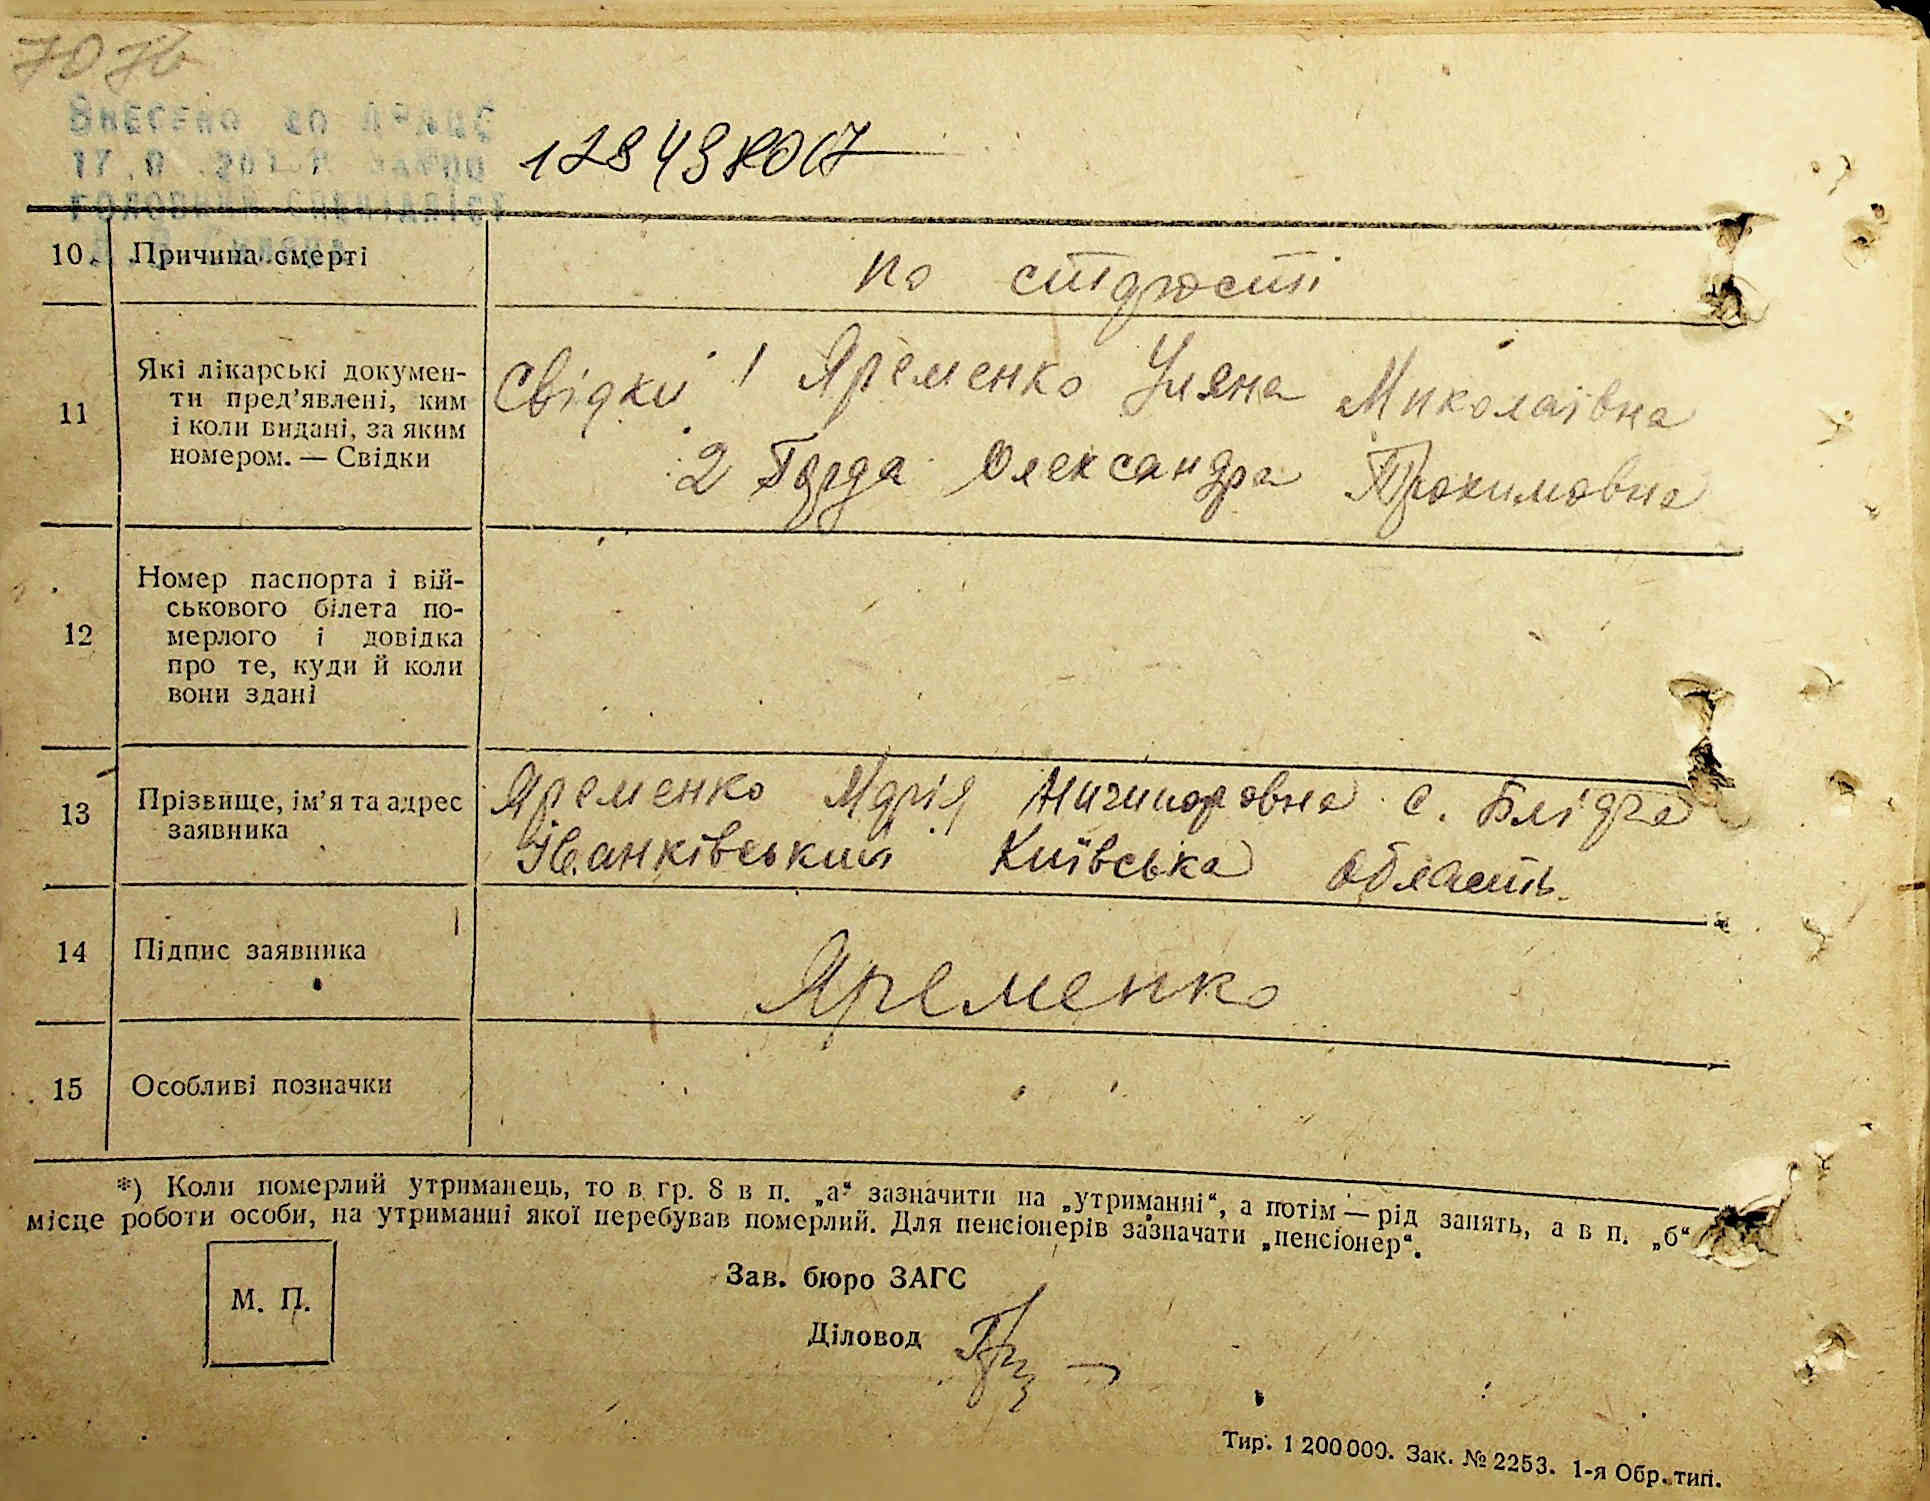 7076
Внесено до
10. Причина смерті
по старості
11
Які лікарські докумен-
ти пред’явлені, ким
і коли видані, за яким
номером. — Свідки
Свідки 1 Яременко Уляна Миколаївна
2 Олександра
12
Номер паспорта і вій-
ськового білета по-
мерлого і довідка
про те, куди й коли
вони здані
13
Прізвище, ім’я та адрес
заявника
Яременко Марія Ничипоровна с. Блідча
Іванківський Київська область.
14 Підпис заявника
Яременко
15 Особливі позначки
*) Коли померлий утриманець, то в гр. 8 в п. „а“ зазначити на „утриманні“, а потім — рід занять, а в п. „б“
місце роботи особи, на утриманні якої перебував померлий. Для пенсіонерів зазначати „пенсіонер“.
М. П.
Зав. бюро ЗАГС
Діловод
Тир. 1 200 000. Зак. № 2253. 1-я Обр. тип.